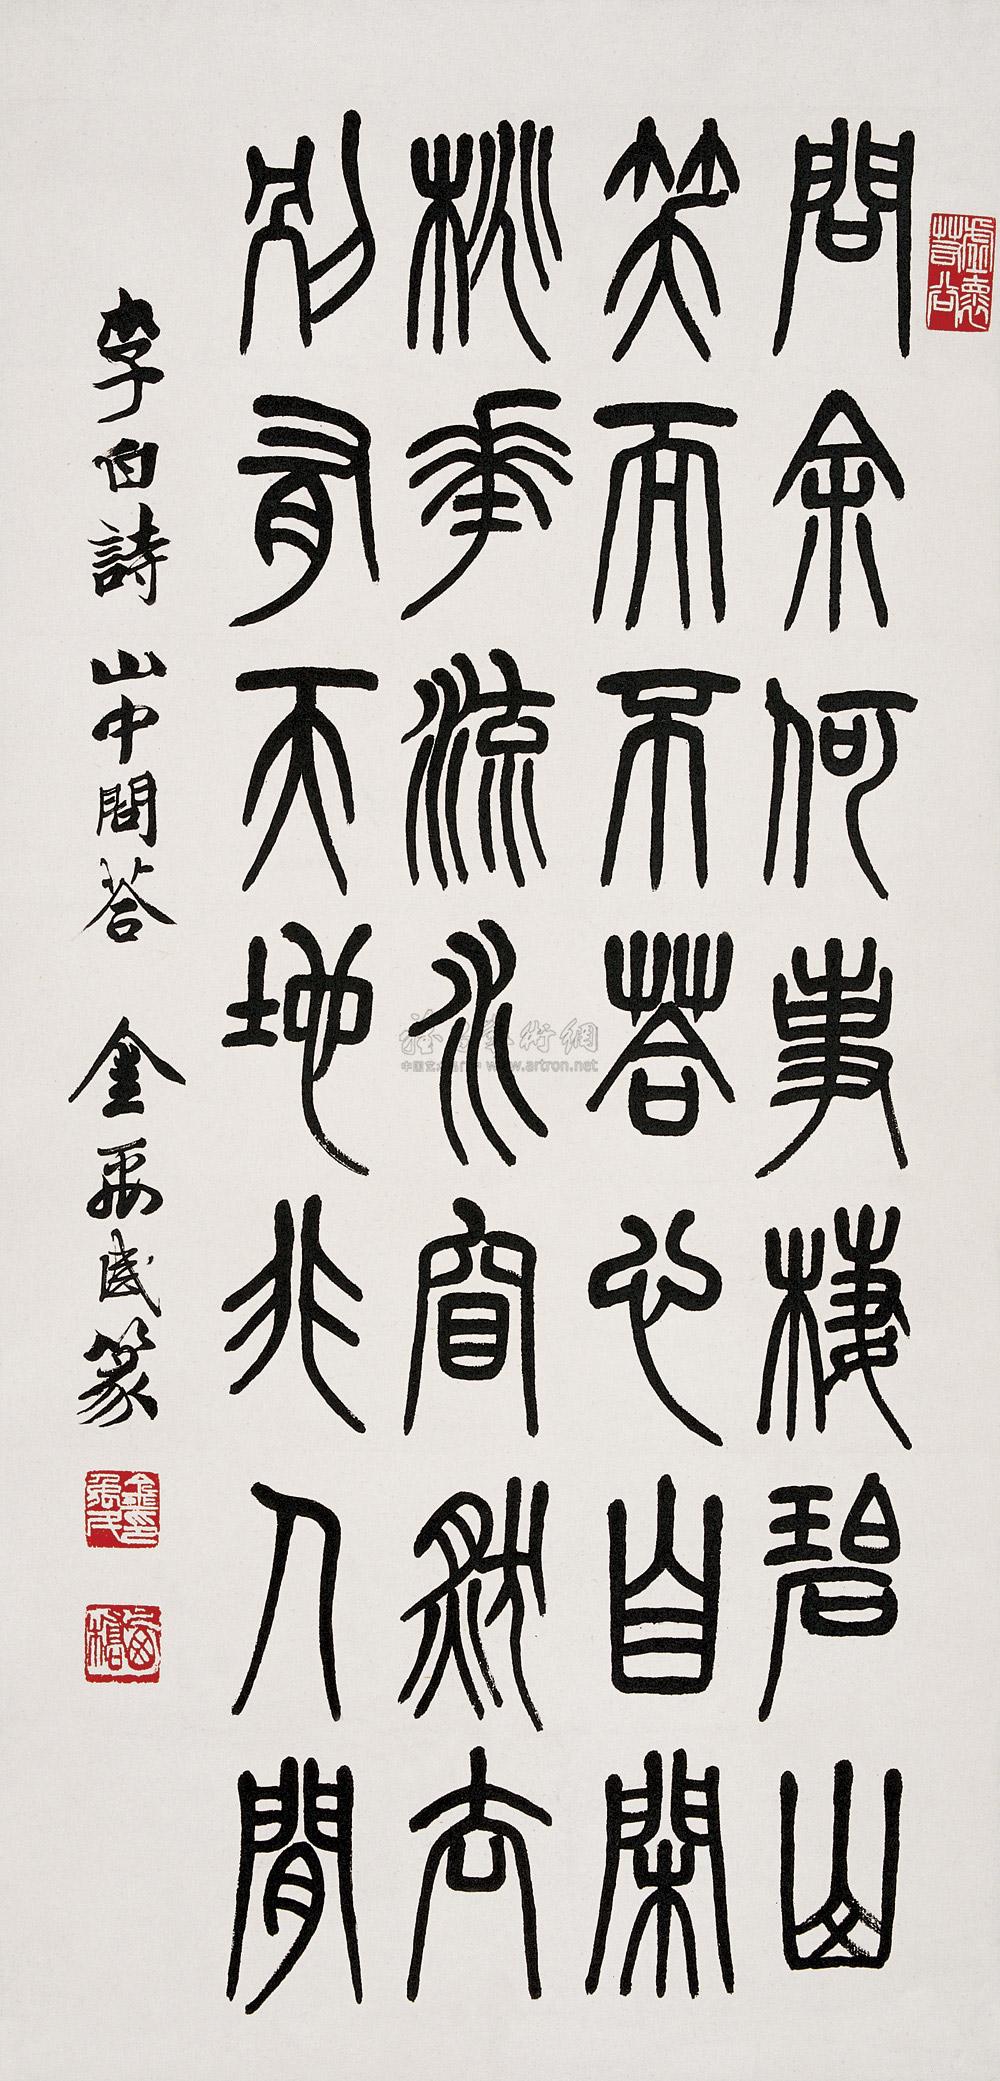 虛懷若谷
問余何事棲碧山
笑而不荅心自閑
桃華流水窅然去
別有天地非人間
李白詩 山中問荅 金禹民篆
www.artron.net